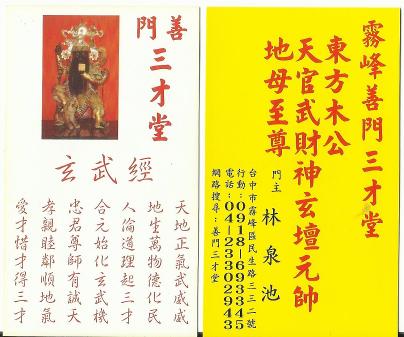 善門
三才堂
玄武經
天地正氣武威威
地生萬物德化民
人倫道理起三才
合元始化玄武機
忠君尊師有誠天
孝親睦鄰順地氣
愛才惜才得三才
霧峰善門三才堂
東方木公
天官武財神玄壇元帥
地母至尊
門主 林泉池
台中市霧峰區民生路三三二號
行動:0918-693345
電話:04-23302943
網路搜尋:善門三才堂